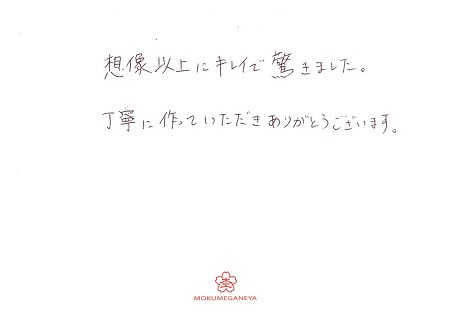 想像以上にキレイで驚きました。
丁寧に作っていただきありがとうございます。
MOKUMEGANEYA